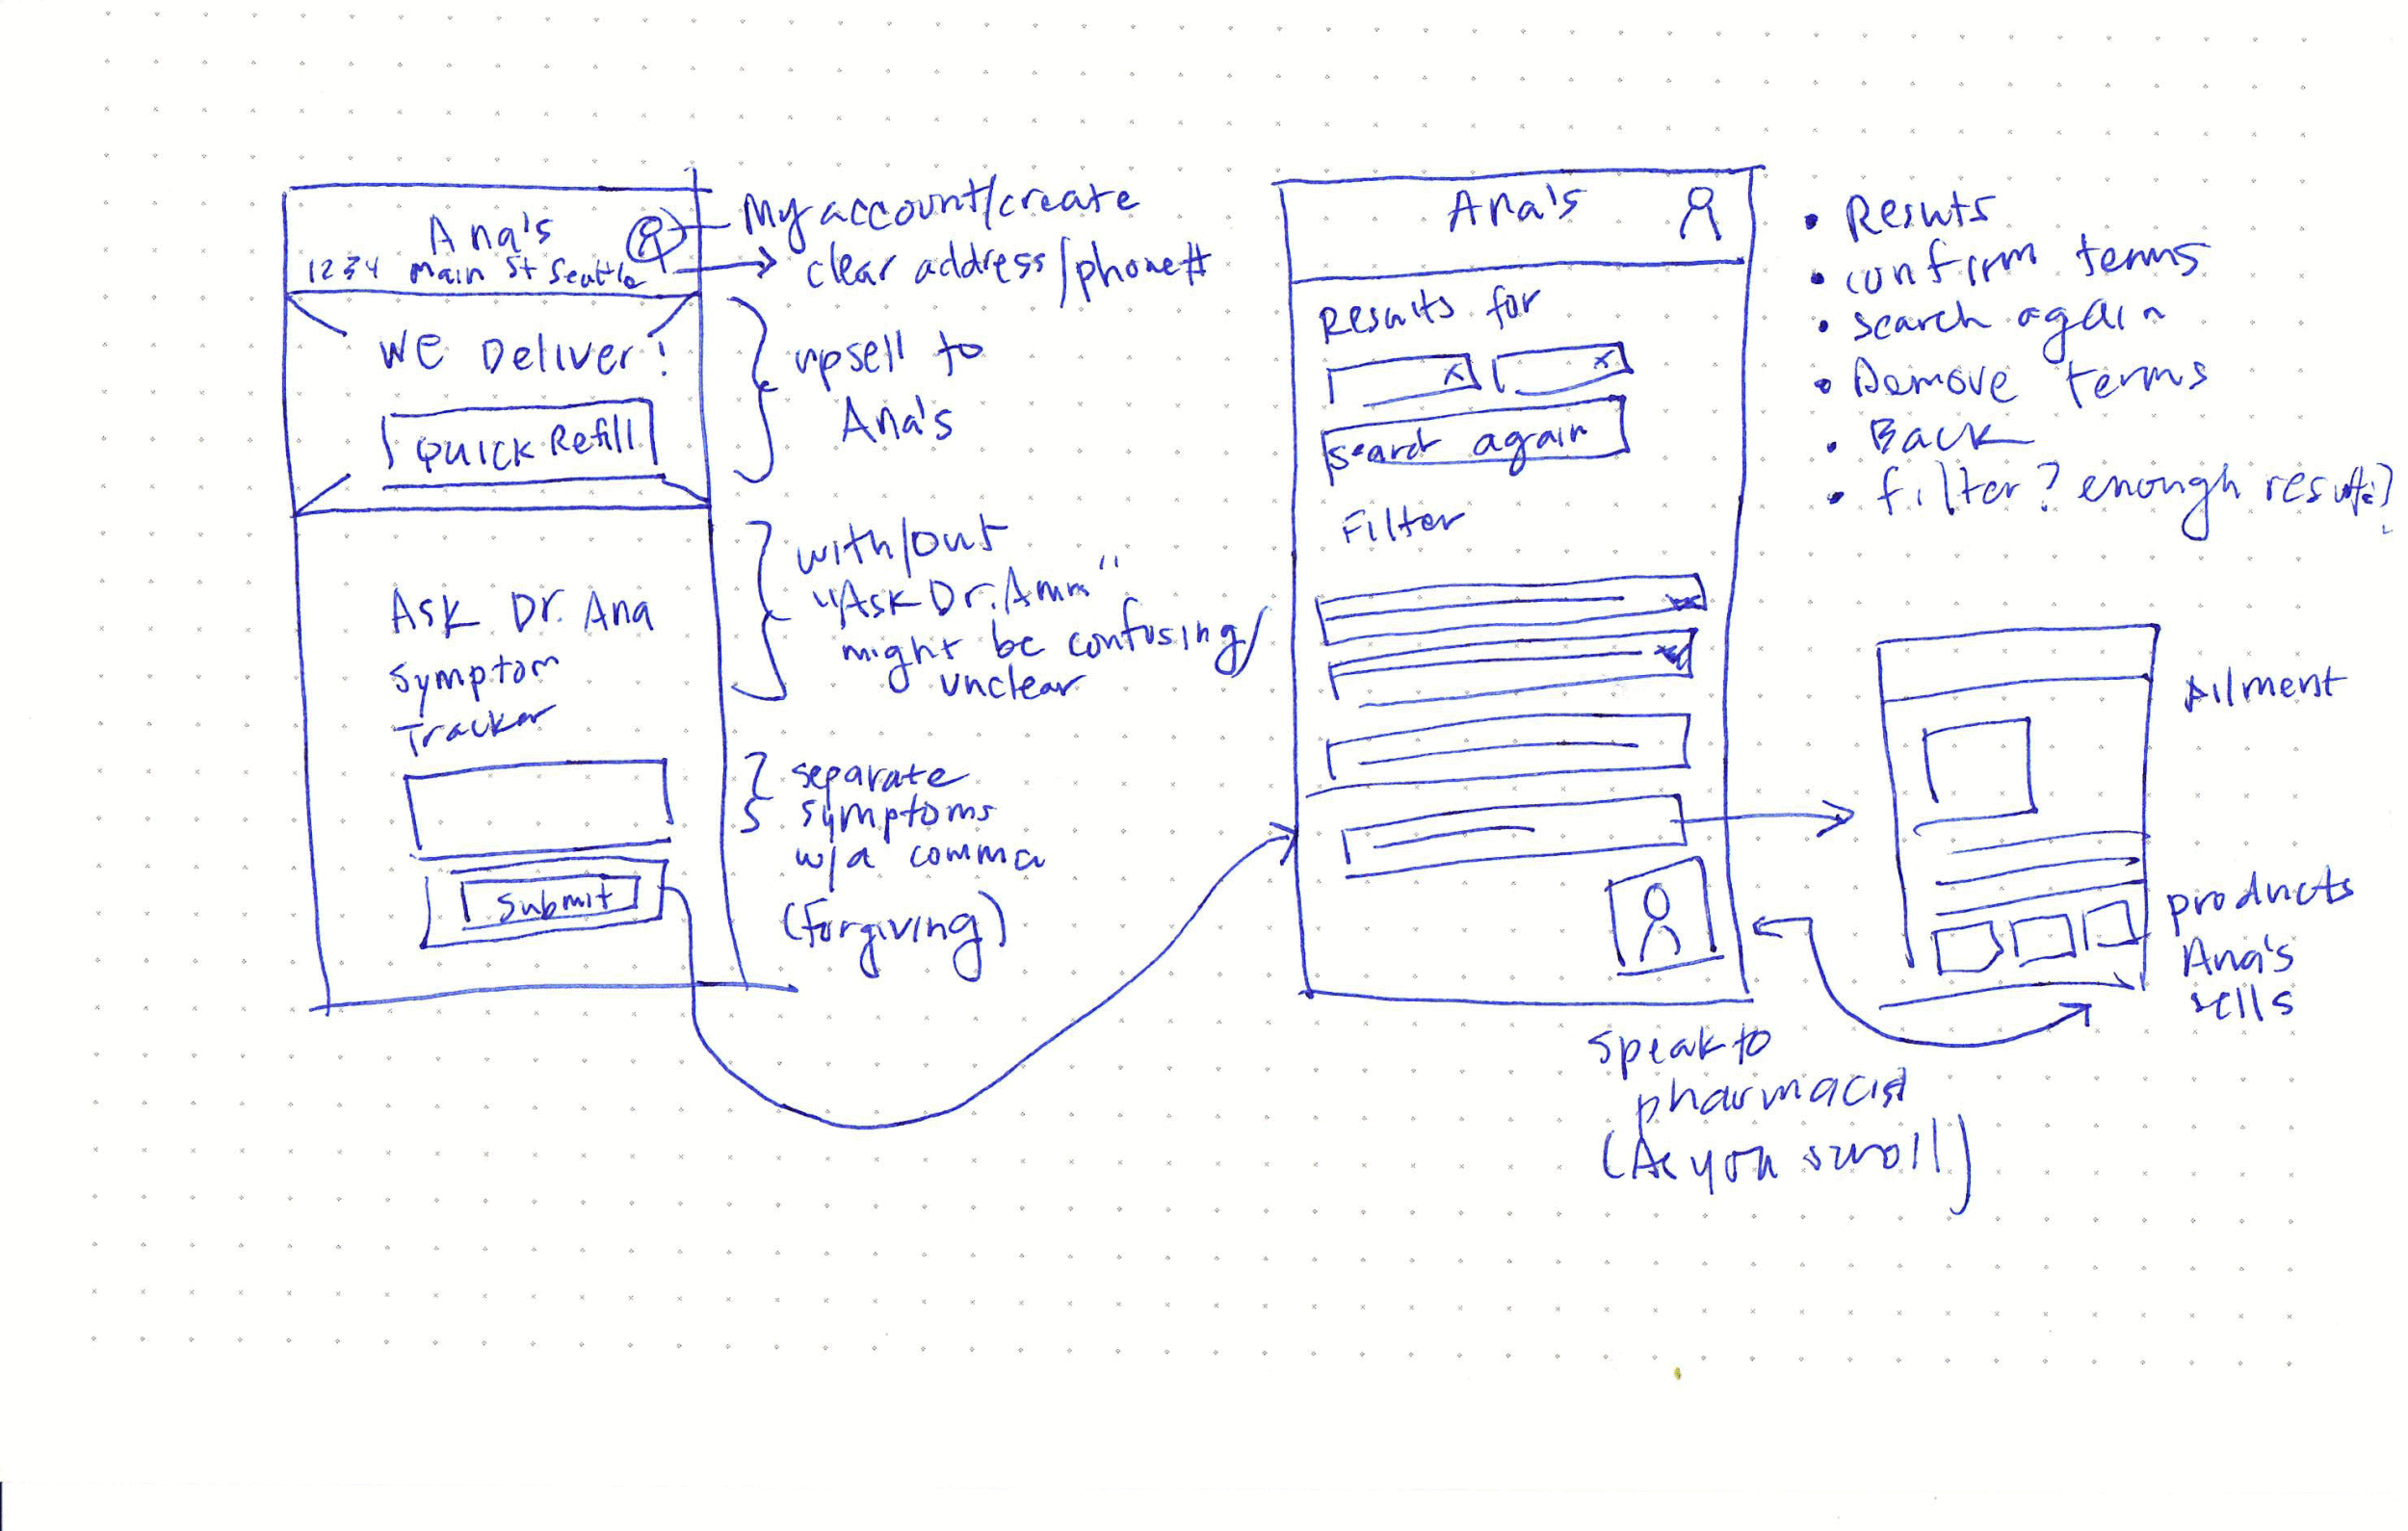 Ana's
1234 Main St Seattle
My account/create
clear address/phone#
We Deliver!
Quick Refill
upsell to
Ana's
Ask Dr. Ana
Symptom
Tracker
with/out
"Ask Dr.
might be confusing/
unclear
Submit
separate
symptoms
w/a comma
(Forgiving)
Ana's
Results for
x x
search again
Filter
• Results
• confirm terms
• search again
• Remove terms
• Back
• filter? enough results?
Speak to
pharmacist
(As you scroll)
Ailment
products
Ana's
sells